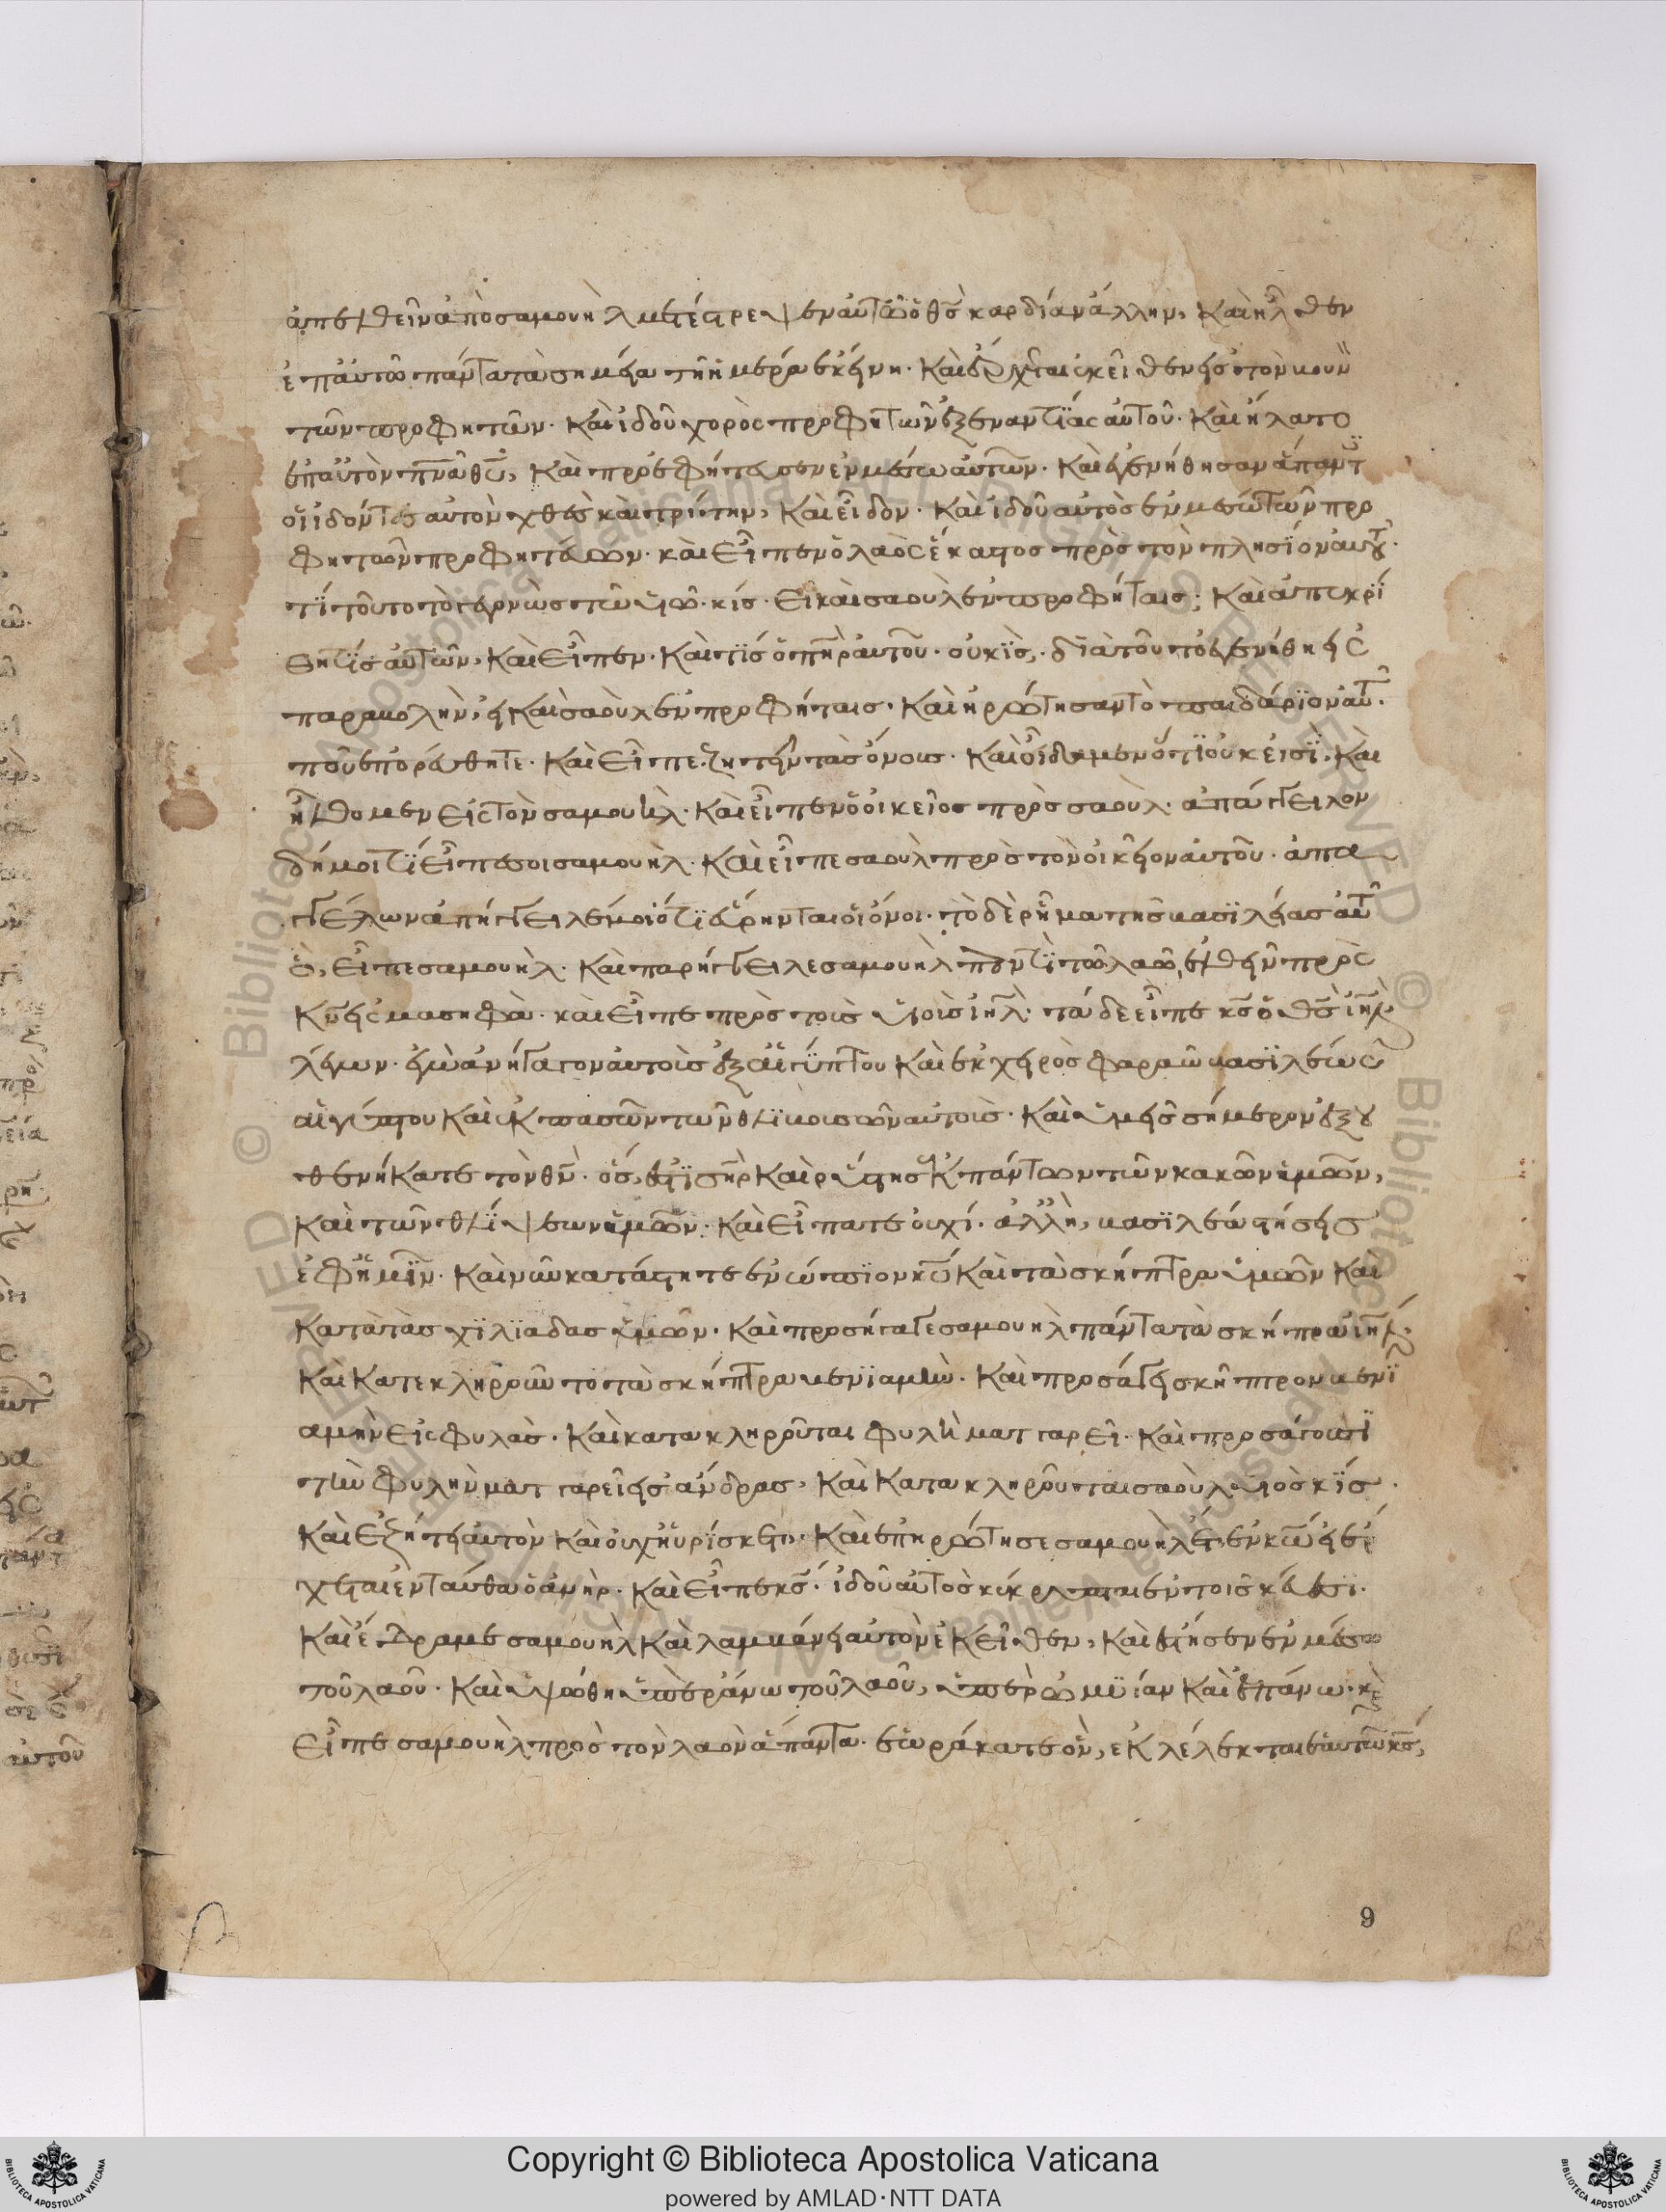 ἀπελθεῖν ἀπὸ σαμουὴλ μετέστρεψεν αὐτῶ ὁ θς καρδίαν ἄλλην, καὶ ἦλθεν
ἐπ αὐτῶ πάντα τὰ σημεῖα τῆ ἡμέρα ἐκείνη. καὶ ἔρχεται ἐκεῖθεν εἰς τὸν βουν
τῶν προφητῶν. καὶ ἰδοῦ χορὸς προφητῶν ἐξεναντίας αὐτοῦ. καὶ ἥλατο
ἐπ αὐτὸν πνα θυ, καὶ προεφήτευσεν ἐν μέσω αὐτῶν. καὶ ἐγενήθησαν ἅπαντ
οἱ ἰδόντες αὐτὸν χθὲς καὶ τρίτην, καὶ εἶδον. καὶ ἰδοῦ αὐτὸς ἐν μέσω τῶν προ
φητῶν προφητεύων. καὶ εἶπεν ὁ λαὸς ἕκαστος πρὸς τὸν πλησίον αὐτοῦ.
τί τοῦτο τὸ γεγονὼς τῶ υἱῶ κίς. εἰ καὶ σαουλ ἐν προφήταις; καὶ ἀπεκρί
θη τίς αὐτῶν, καὶ εἶπεν. καὶ τίς ὁ πηρ αὐτοῦ. οὐ κίς, διὰ τοῦτο ἐγενήθη εἰς
παραβολὴν, εἰ καὶ σαοὺλ ἐν προφήταις. καὶ ἠρώτησαν τὸ παιδάριον αὐτ.
ποῦ ἐπορεύθητε. καὶ εἶπε ζητεῖν τὰς ὄνους. καὶ οἴδαμεν ὅτι οὐκ εἰσὶ, καὶ
ἤλθομεν εἰς τὸν σαμουὴλ. καὶ εἶπεν ὁ οἰκεῖος πρὸς σαοὺλ. ἀπάγγειλον
δή μοι τί εἶπε σοι σαμουὴλ. καὶ εἶπε σαοὺλ πρὸς τὸν οἰκεῖον αὐτοῦ. ἀπα
γγέλων ἀπήγγειλέ μοι ὅτι εὕρηνται οἱ ὄνοι. τὸ δὲ ῥῆμα τῆς βασιλείας αὐτ
ὃ, εἶπε σαμουὴλ. καὶ παρήγγειλε σαμουὴλ παντὶ τῶ λαῶ, ἐλθεῖν πρὸς
κν εἰς μασηφὰ. καὶ εἶπε πρὸς τοὺς υἱοὺς ιηλ. τάδε εἶπε κς ὁ θς ιηλ
λέγων. ἐγὼ ἀνήγαγον αὐτοὺς ἐξ αἰγύπτου καὶ ἐκ χειρὸς φαραὼ βασιλέως
αἰγύπτου καὶ ἐκ πασῶν τῶν θλιβουσῶν αὐτοὺς. καὶ ὑμεῖς σήμερον ἐξου
θενήκατε τὸν θν. ὅς, ἐστὶ σηρ καὶ ῥύστης ἐκ πάντων τῶν κακῶν ἡμῶν,
καὶ τῶν θλίψεων ἡμῶν. καὶ εἴπατε οὐχί. ἀλλὴ, βασιλέα στήσεις
ἐφ ἡμῖν. καὶ νῦν κατάστητε ἐνώπιον κυ κατὰ τὰ σκήπτρα ὑμῶν καὶ
κατὰ τὰς χιλιάδας ὑμῶν. καὶ προσήγαγε σαμουὴλ πάντα τὰ σκήπρα ιηλ.
καὶ κατεκληροῦτο τὰ σκήπτρα βενϊαμὶν. καὶ προσάγει σκῆπτρον βενϊ
αμὴν εἰς φυλὰς. καὶ κατακληροῦται φυλὴ ματταρεῖ. καὶ προσάγουσι
τὴν φυλὴν ματταρεῖ εἰς ἄνδρας, καὶ κατακληροῦται σαοὺλ υἱὸς κίς.
καὶ ἐζήτει αὐτὸν καὶ οὐχ ηὑρίσκετο, καὶ ἐπηρώτησε σαμουὴλ ἔτι ἐν κω εἰ ἔρ
χεται ἐνταύθα ὁ ἀνὴρ. καὶ εἶπε κς. ἰδοῦ αὐτὸς κέκρυπται ἐν τοῖς σκεύεσι.
καὶ ἔδραμε σαμουὴλ καὶ λαμβάνει αὐτὸν ἐκεῖθεν, καὶ ἔστησεν ἐν μέσω
τοῦ λαοῦ. καὶ ὑψώθη ὑπεράνω τοῦ λαοῦ, ὑπὲρ ὠμίαν καὶ ἐπάνω. κὲ
εἶπε σαμουὴλ πρὸς τὸν λαὸν ἅπαντα. ἑωράκατε ὃν, ἐκλέλεκται ἑαυτῶ κς,
9
Copyright © Biblioteca Apostolica Vaticana
powered by AMLAD·NTT DATA